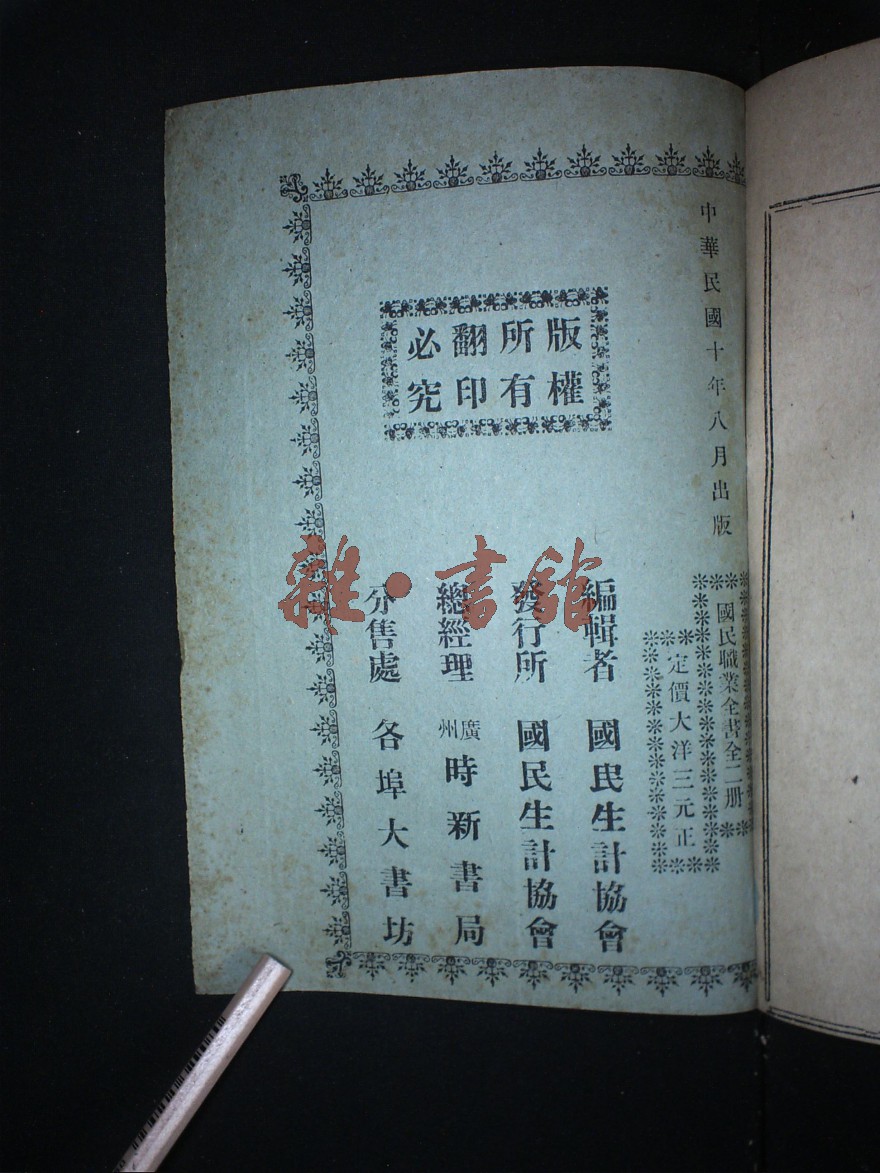 中華民國十年八月出版
國民職業全書全二册
定價大洋三元正
版權
所有
翻印
必究
編輯者 國民生計協會
發行所 國民生計協會
總經理 廣州時新書局
分售處 各埠大書坊
雜·書館